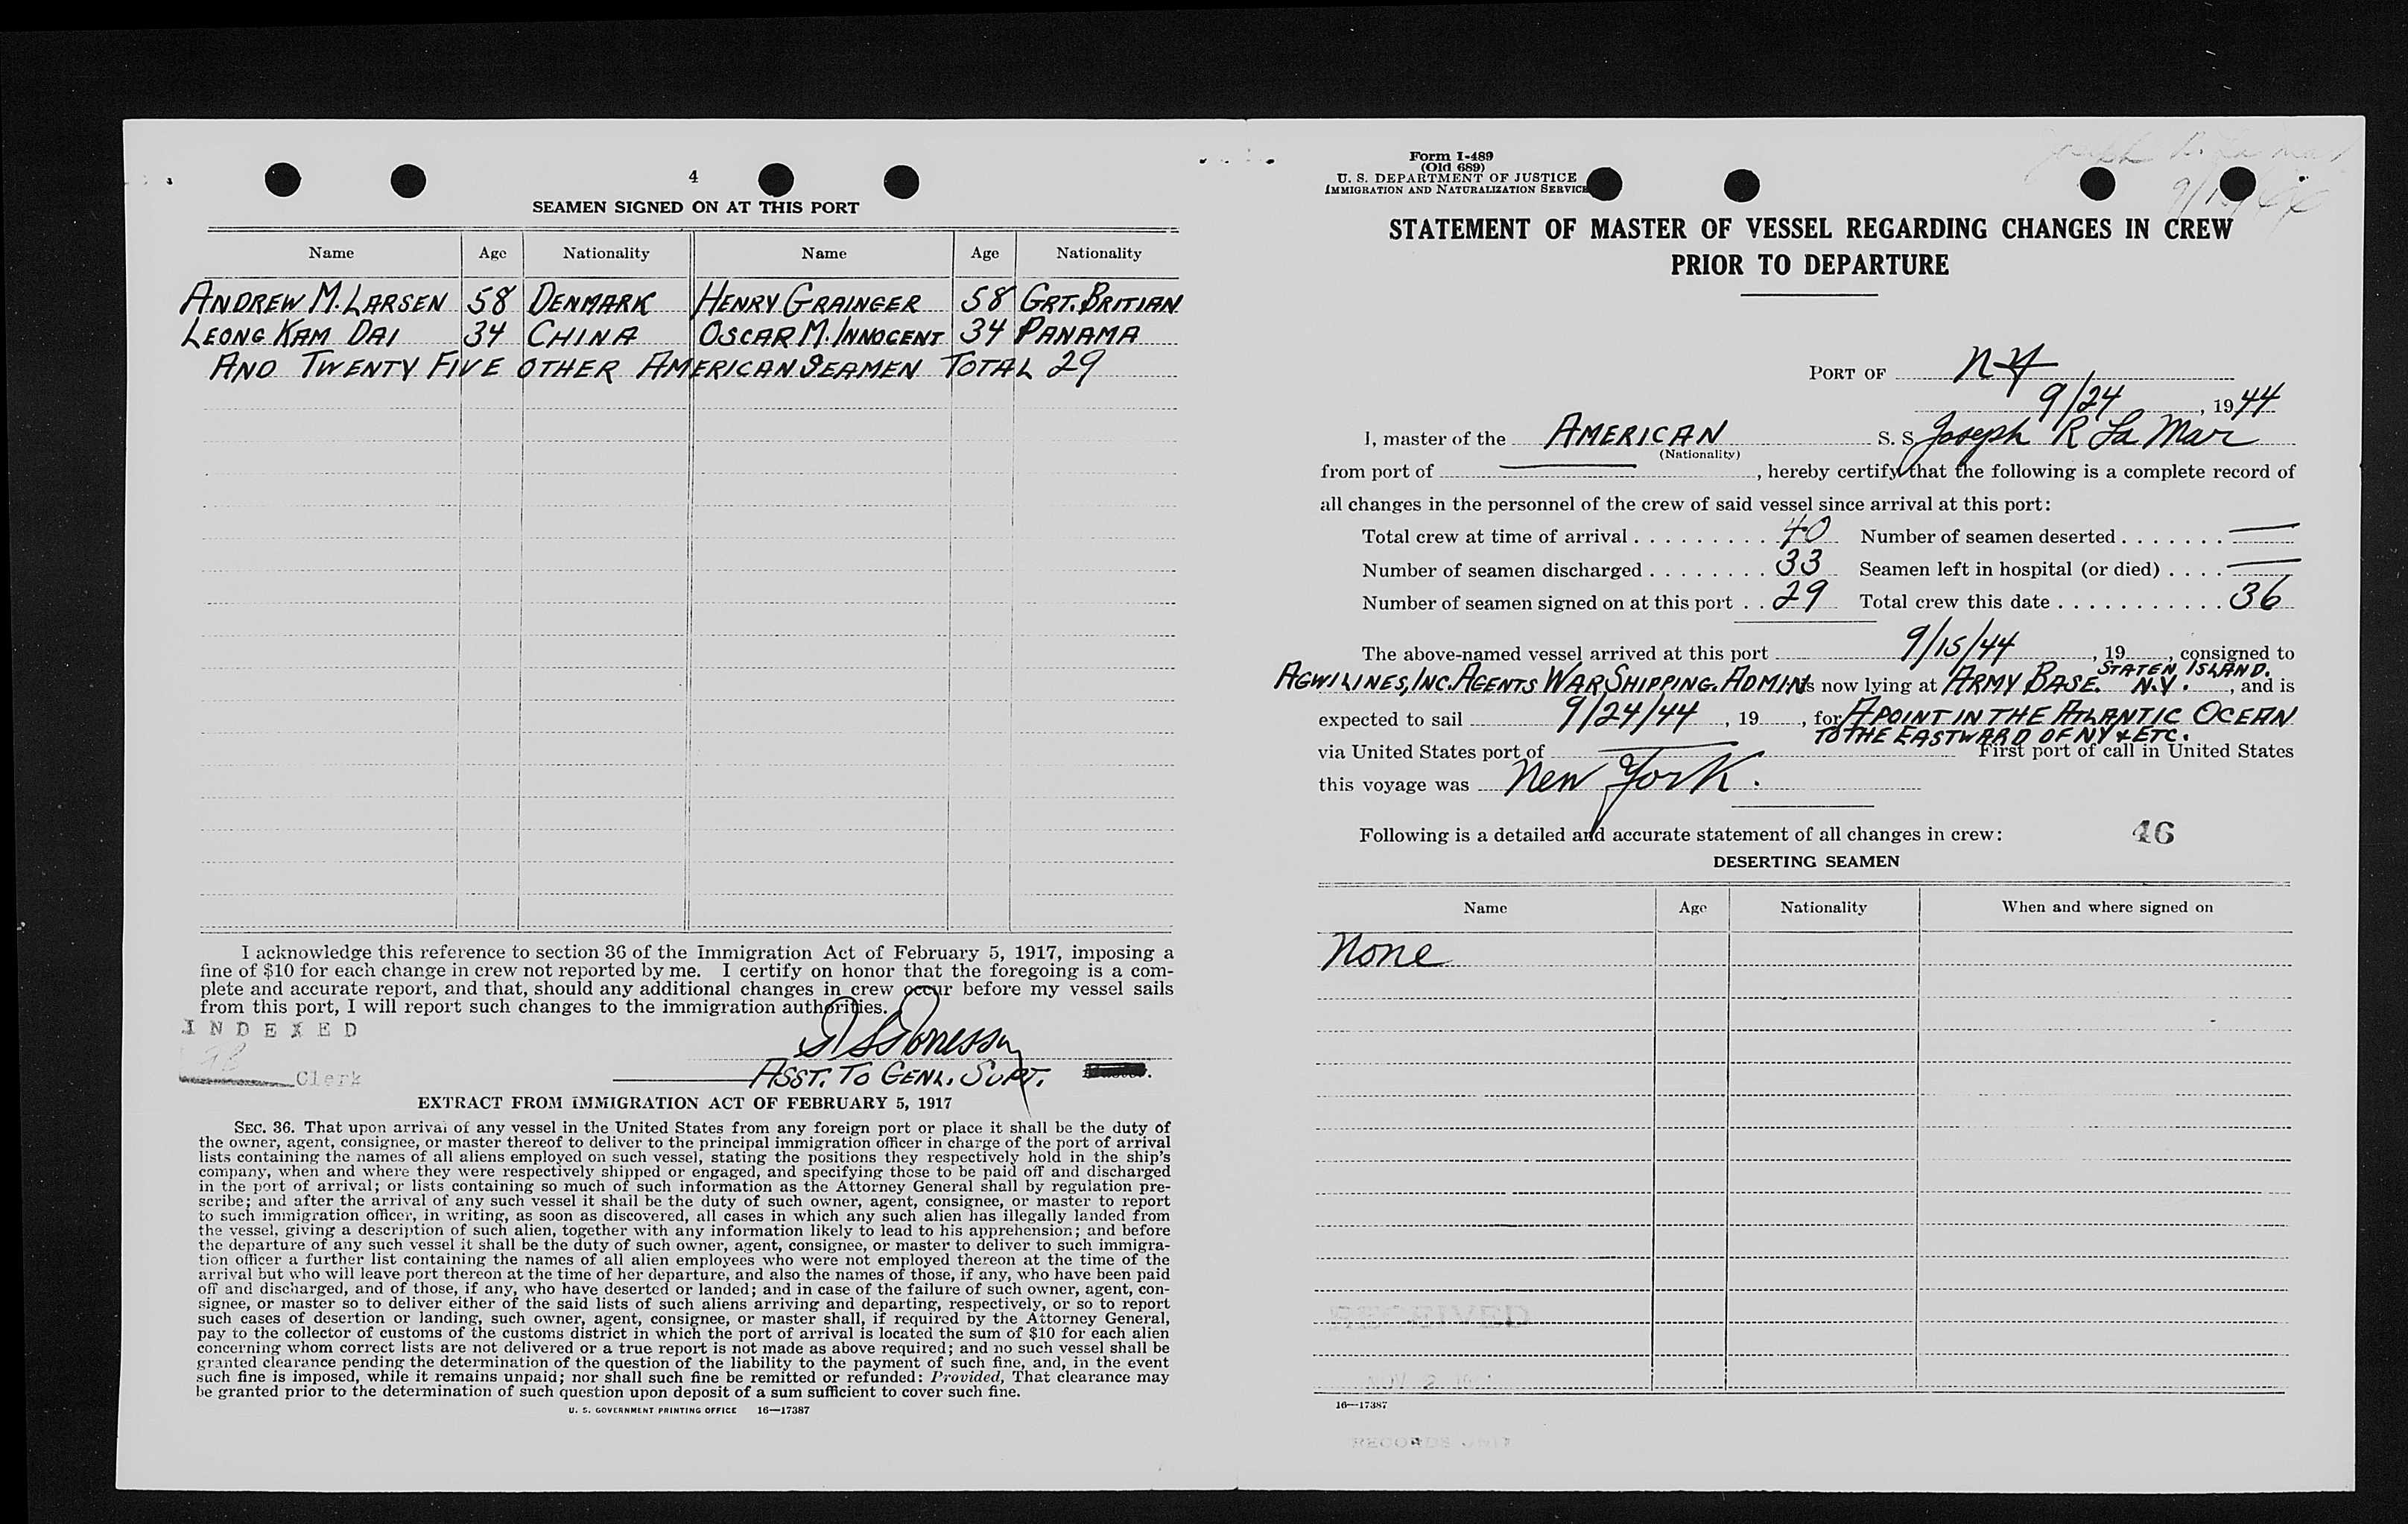 4
SEAMEN SIGNED ON AT THIS PORT
Name Age Nationality Name Age Nationality
ANDREW M. LARSEN 58 DENMARK HENRY GRAINGER 58 GRT. BRITIAN
LEONG KAM DAI 34 CHINA OSCAR M. INNOCENT 34 PANAMA
AND TWENTY FIVE OTHER AMERICAN SEAMEN TOTAL 29
I acknowledge this reference to section 36 of the Immigration Act of February 5, 1917, imposing a
fine of $10 for each change in crew not reported by me. I certify on honor that the foregoing is a com-
plete and accurate report, and that, should any additional changes in crew occur before my vessel sails
from this port, I will report such changes to the immigration authorities.
INDEXED
Clerk
ASST. TO GENL. SUPT.
EXTRACT FROM IMMIGRATION ACT OF FEBRUARY 5, 1917
SEC. 36. That upon arrival of any vessel in the United States from any foreign port or place it shall be the duty of
the owner, agent, consignee, or master thereof to deliver to the principal immigration officer in charge of the port of arrival
lists containing the names of all aliens employed on such vessel, stating the positions they respectively hold in the ship's
company, when and where they were respectively shipped or engaged, and specifying those to be paid off and discharged
in the port of arrival; or lists containing so much of such information as the Attorney General shall by regulation pre-
scribe; and after the arrival of any such vessel it shall be the duty of such owner, agent, consignee, or master to report
to such immigration officer, in writing, as soon as discovered, all cases in which any such alien has illegally landed from
the vessel, giving a description of such alien, together with any information likely to lead to his apprehension; and before
the departure of any such vessel it shall be the duty of such owner, agent, consignee, or master to deliver to such immigra-
tion officer a further list containing the names of all alien employees who were not employed thereon at the time of the
arrival but who will leave port thereon at the time of her departure, and also the names of those, if any, who have been paid
off and discharged, and of those, if any, who have deserted or landed; and in case of the failure of such owner, agent, con-
signee, or master so to deliver either of the said lists of such aliens arriving and departing, respectively, or so to report
such cases of desertion or landing, such owner, agent, consignee, or master shall, if required by the Attorney General,
pay to the collector of customs of the customs district in which the port of arrival is located the sum of $10 for each alien
concerning whom correct lists are not delivered or a true report is not made as above required; and no such vessel shall be
granted clearance pending the determination of the question of the liability to the payment of such fine, and, in the event
such fine is imposed, while it remains unpaid; nor shall such fine be remitted or refunded: Provided, That clearance may
be granted prior to the determination of such question upon deposit of a sum sufficient to cover such fine.
U. S. GOVERNMENT PRINTING OFFICE 16—17387
Form I-489
(Old 689)
U. S. DEPARTMENT OF JUSTICE
IMMIGRATION AND NATURALIZATION SERVICE
STATEMENT OF MASTER OF VESSEL REGARDING CHANGES IN CREW
PRIOR TO DEPARTURE
PORT OF NY
9/24, 1944
I, master of the AMERICAN S. S. Joseph R La Mar
(Nationality)
from port of , hereby certify that the following is a complete record of
all changes in the personnel of the crew of said vessel since arrival at this port:
Total crew at time of arrival 40 Number of seamen deserted —
Number of seamen discharged 33 Seamen left in hospital (or died) —
Number of seamen signed on at this port 29 Total crew this date 36
The above-named vessel arrived at this port 9/15/44, 19 , consigned to
AGWILINES, INC. AGENTS WAR SHIPPING. ADMIN is now lying at ARMY BASE. STATEN ISLAND. N.Y. , and is
expected to sail 9/24/44, 19 , for A POINT IN THE ATLANTIC OCEAN
TO THE EASTWARD OF NY & ETC.
via United States port of — First port of call in United States
this voyage was New York.
Following is a detailed and accurate statement of all changes in crew: 46
DESERTING SEAMEN
Name Age Nationality When and where signed on
None
RECEIVED
16—17387
RECORDS UNIT